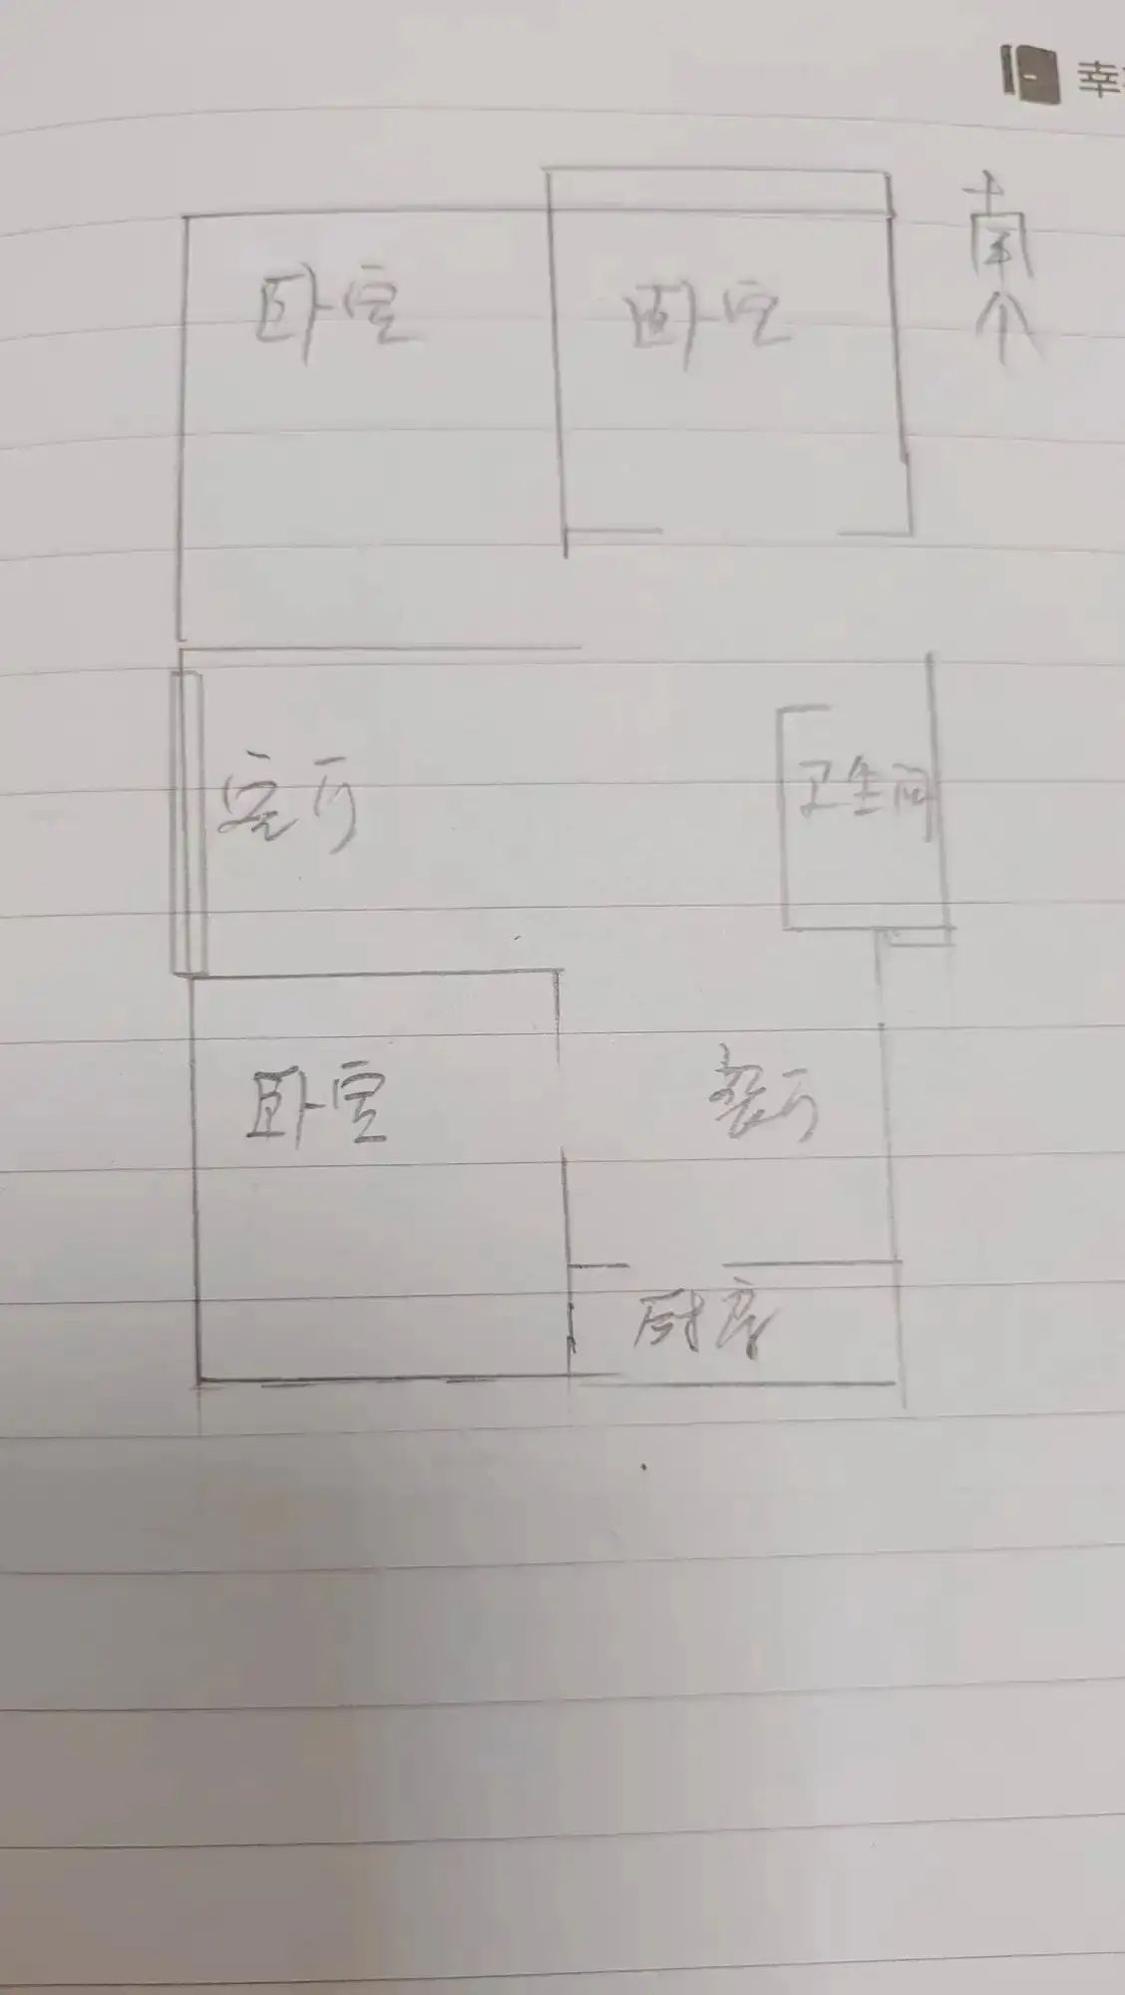 幸
南
卧室 卧室
客厅 卫生间
卧室 餐厅
厨房